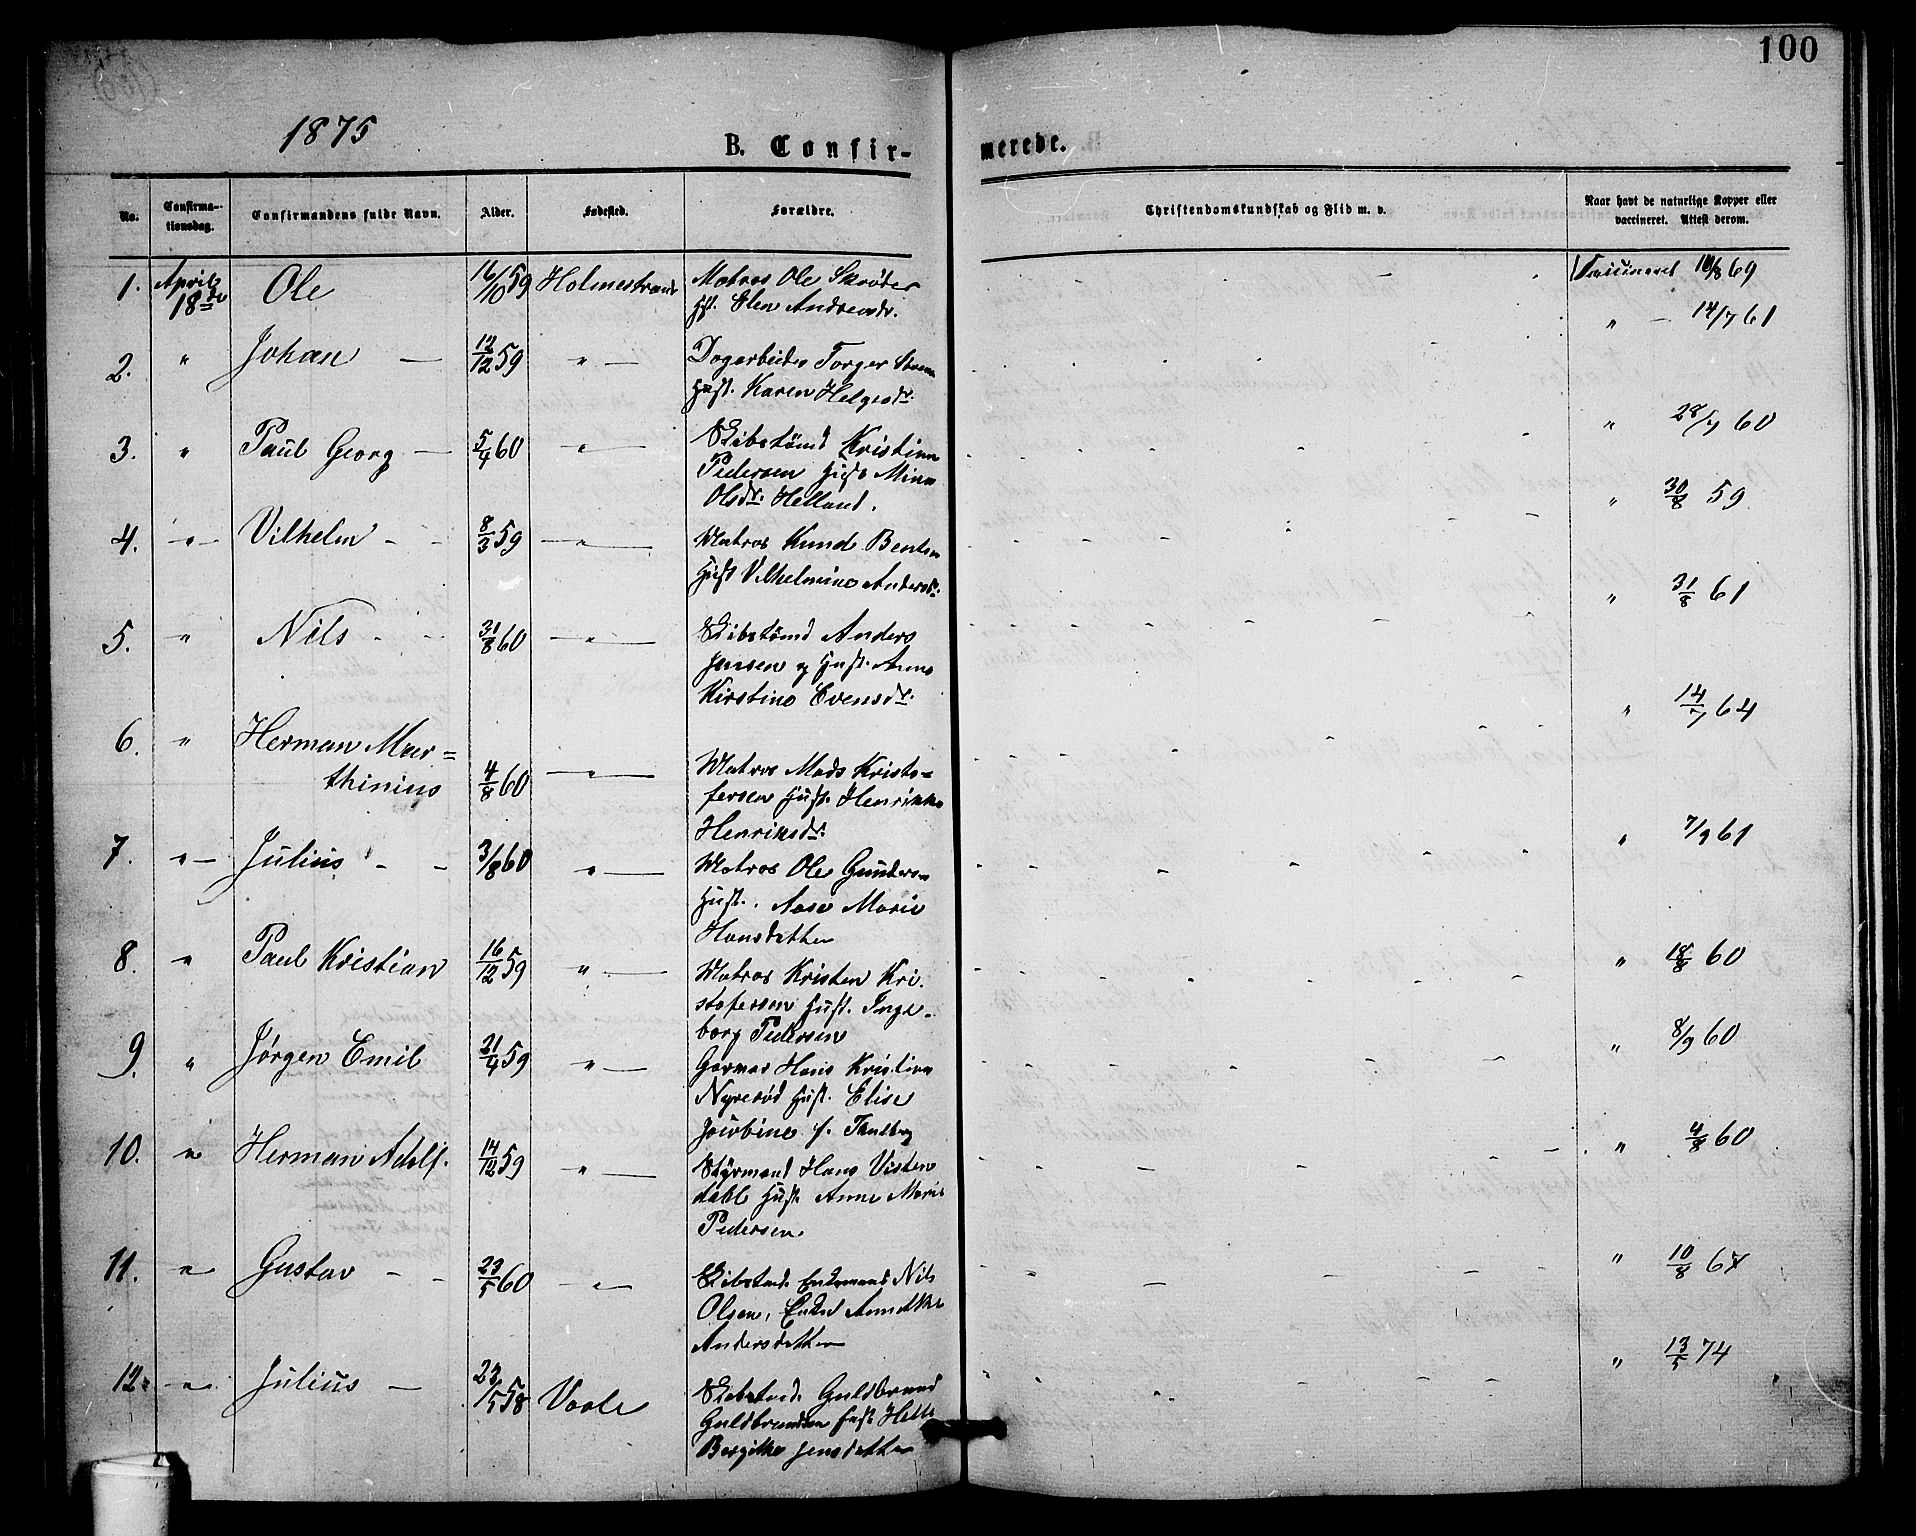 100
1875
B. Confir-
merede.
No.
Confirma-
tionsdag.
Confirmandens fulde Navn.
Alder.
Fødested.
Forældre.
Christendomskundskab og Flid m. v.
Naar havt de naturlige Kopper eller
vaccineret. Attest derom.
1. April 18de Ole 16/10 59 Holmestrand Matros Ole Skrøder
Hst. Elen Andreasdr.
Vaccineret 10/8 69
2. " Johan — 12/12 59 " — Dagarbeider Torger
Hust. Karen Helgesdr.
" — 14/7 61
3. " Paul Georg — 5/4 60 " — Skibstømd Kristian
Pedersen Hust Mina
Olsdr. Helland.
" 28/7 60
4. " Vilhelm - - 8/3 59 — " — Matros Knud Bentsen
Hust Vilhelmine Andersdr.
" 30/8 59
5. " Nils - - 31/8 60 — " — Skibstømd Anders
Jensen og Hust. Anne
Kirstine Evensdr.
" 31/8 61
6. " Herman Mar=
thinius 4/8 60 — " — Matros Mads Kristo=
fersen Hust. Henrikke
Henriksdr.
" 14/7 64
7. " — Julius - - 3/8 60 " — Matros Ole Gunders
Hust. Aase Marie
Hansdatter
" 7/9 61
8. " Paul Kristian 16/12 59 " — Matros Kristen Kri-
stofersen Hust. Inge-
borg Pedersen
" 18/8 60
9. " Jørgen Emil 21/4 59 " — Garver Hans Kristian
Nyresød Hust. Elise
Jacobine f.
" 8/9 60
10. " Herman Adolf. 14/12 59 " — Styrmand Hans Visten
dahl Hust. Anne Marie
Pedersen.
" 4/8 60
11. " Gustav - - 23/5 60 — " Skibstmd. Enkemand Nils
Olsen, Andersdatter
" 10/8 61
12. " Julius — 23/5 58 Vaale Skibstmd. Guldbrand
Guldbrandsen Hust Helle
Bergitte Jensdatter
" 13/5 74